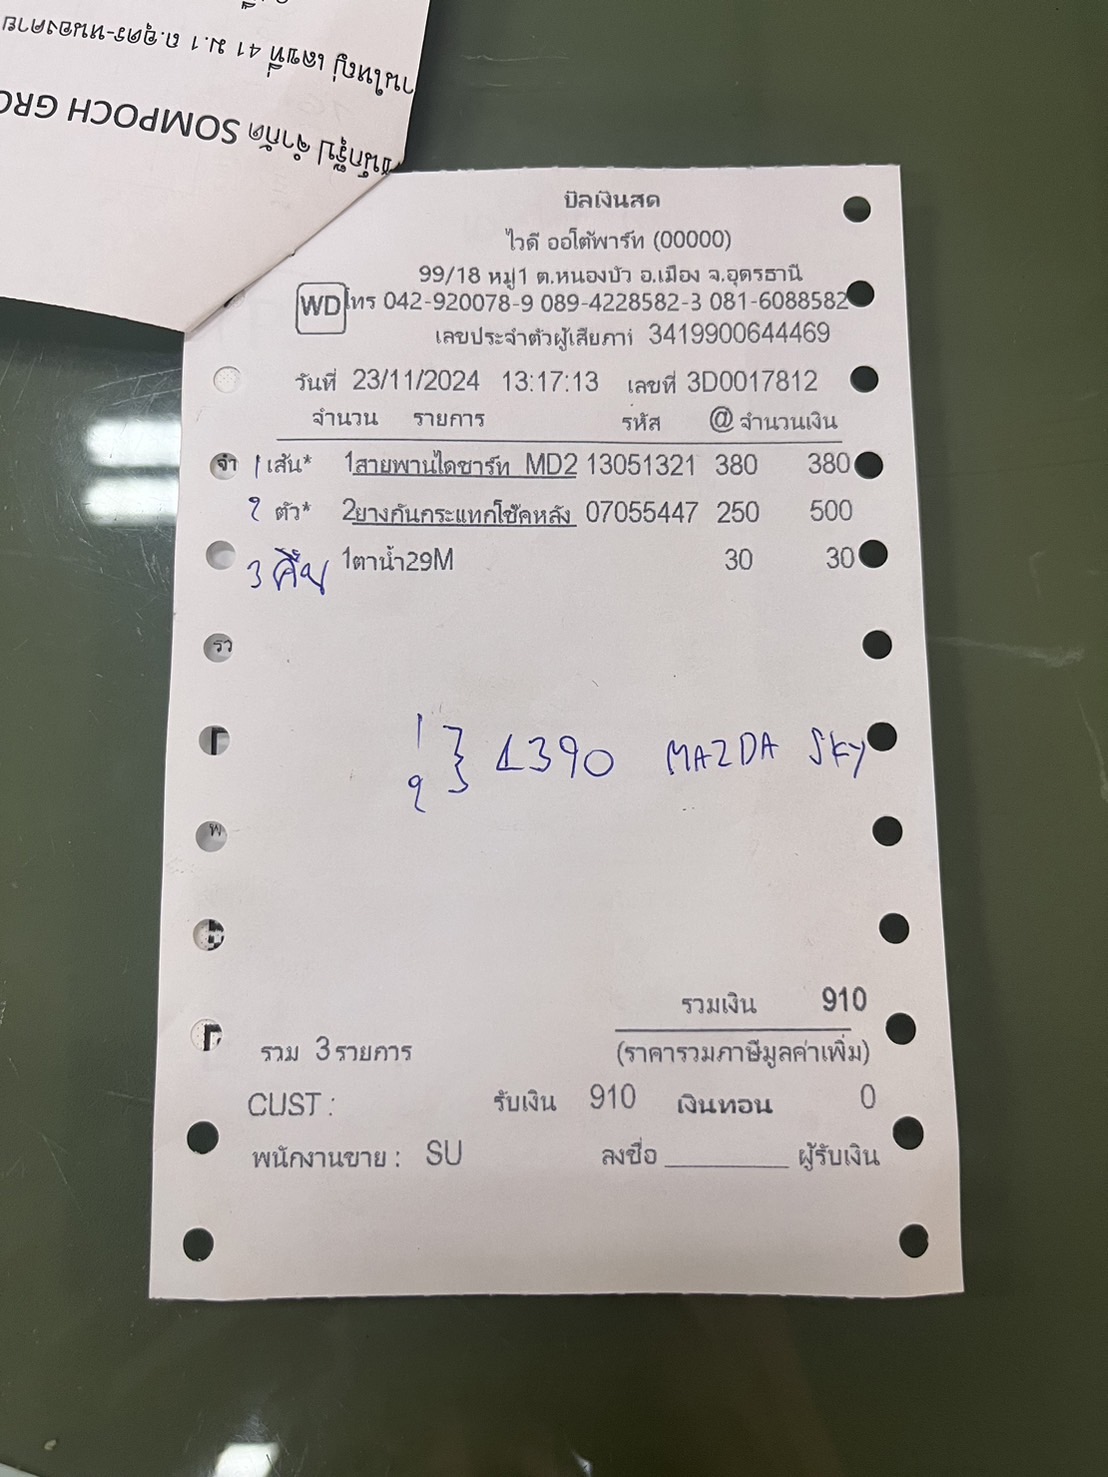 ชันกรุ๊ป จำกัด SOMPOCH GRO
านใหญ่ เลขที่ 41 ม.1 ถ.อุดร-หนองคาย
บิลเงินสด
ไวดี ออโต้พาร์ท (00000)
99/18 หมู่1 ต.หนองบัว อ.เมือง จ.อุดรธานี
WD โทร 042-920078-9 089-4228582-3 081-6088582
เลขประจำตัวผู้เสียภาษี 3419900644469
วันที่ 23/11/2024 13:17:13 เลขที่ 3D0017812
จำนวน รายการ รหัส @ จำนวนเงิน
1 เส้น* 1สายพานไดชาร์ท MD2 13051321 380 380
2 ตัว* 2ยางกันกระแทกโช๊คหลัง 07055447 250 500
3 คืน 1ตาน้ำ29M 30 30
1
2 } 1390 MAZDA SKY
รวมเงิน 910
รวม 3รายการ (ราคารวมภาษีมูลค่าเพิ่ม)
CUST : รับเงิน 910 เงินทอน 0
พนักงานขาย : SU ลงชื่อ ________ ผู้รับเงิน